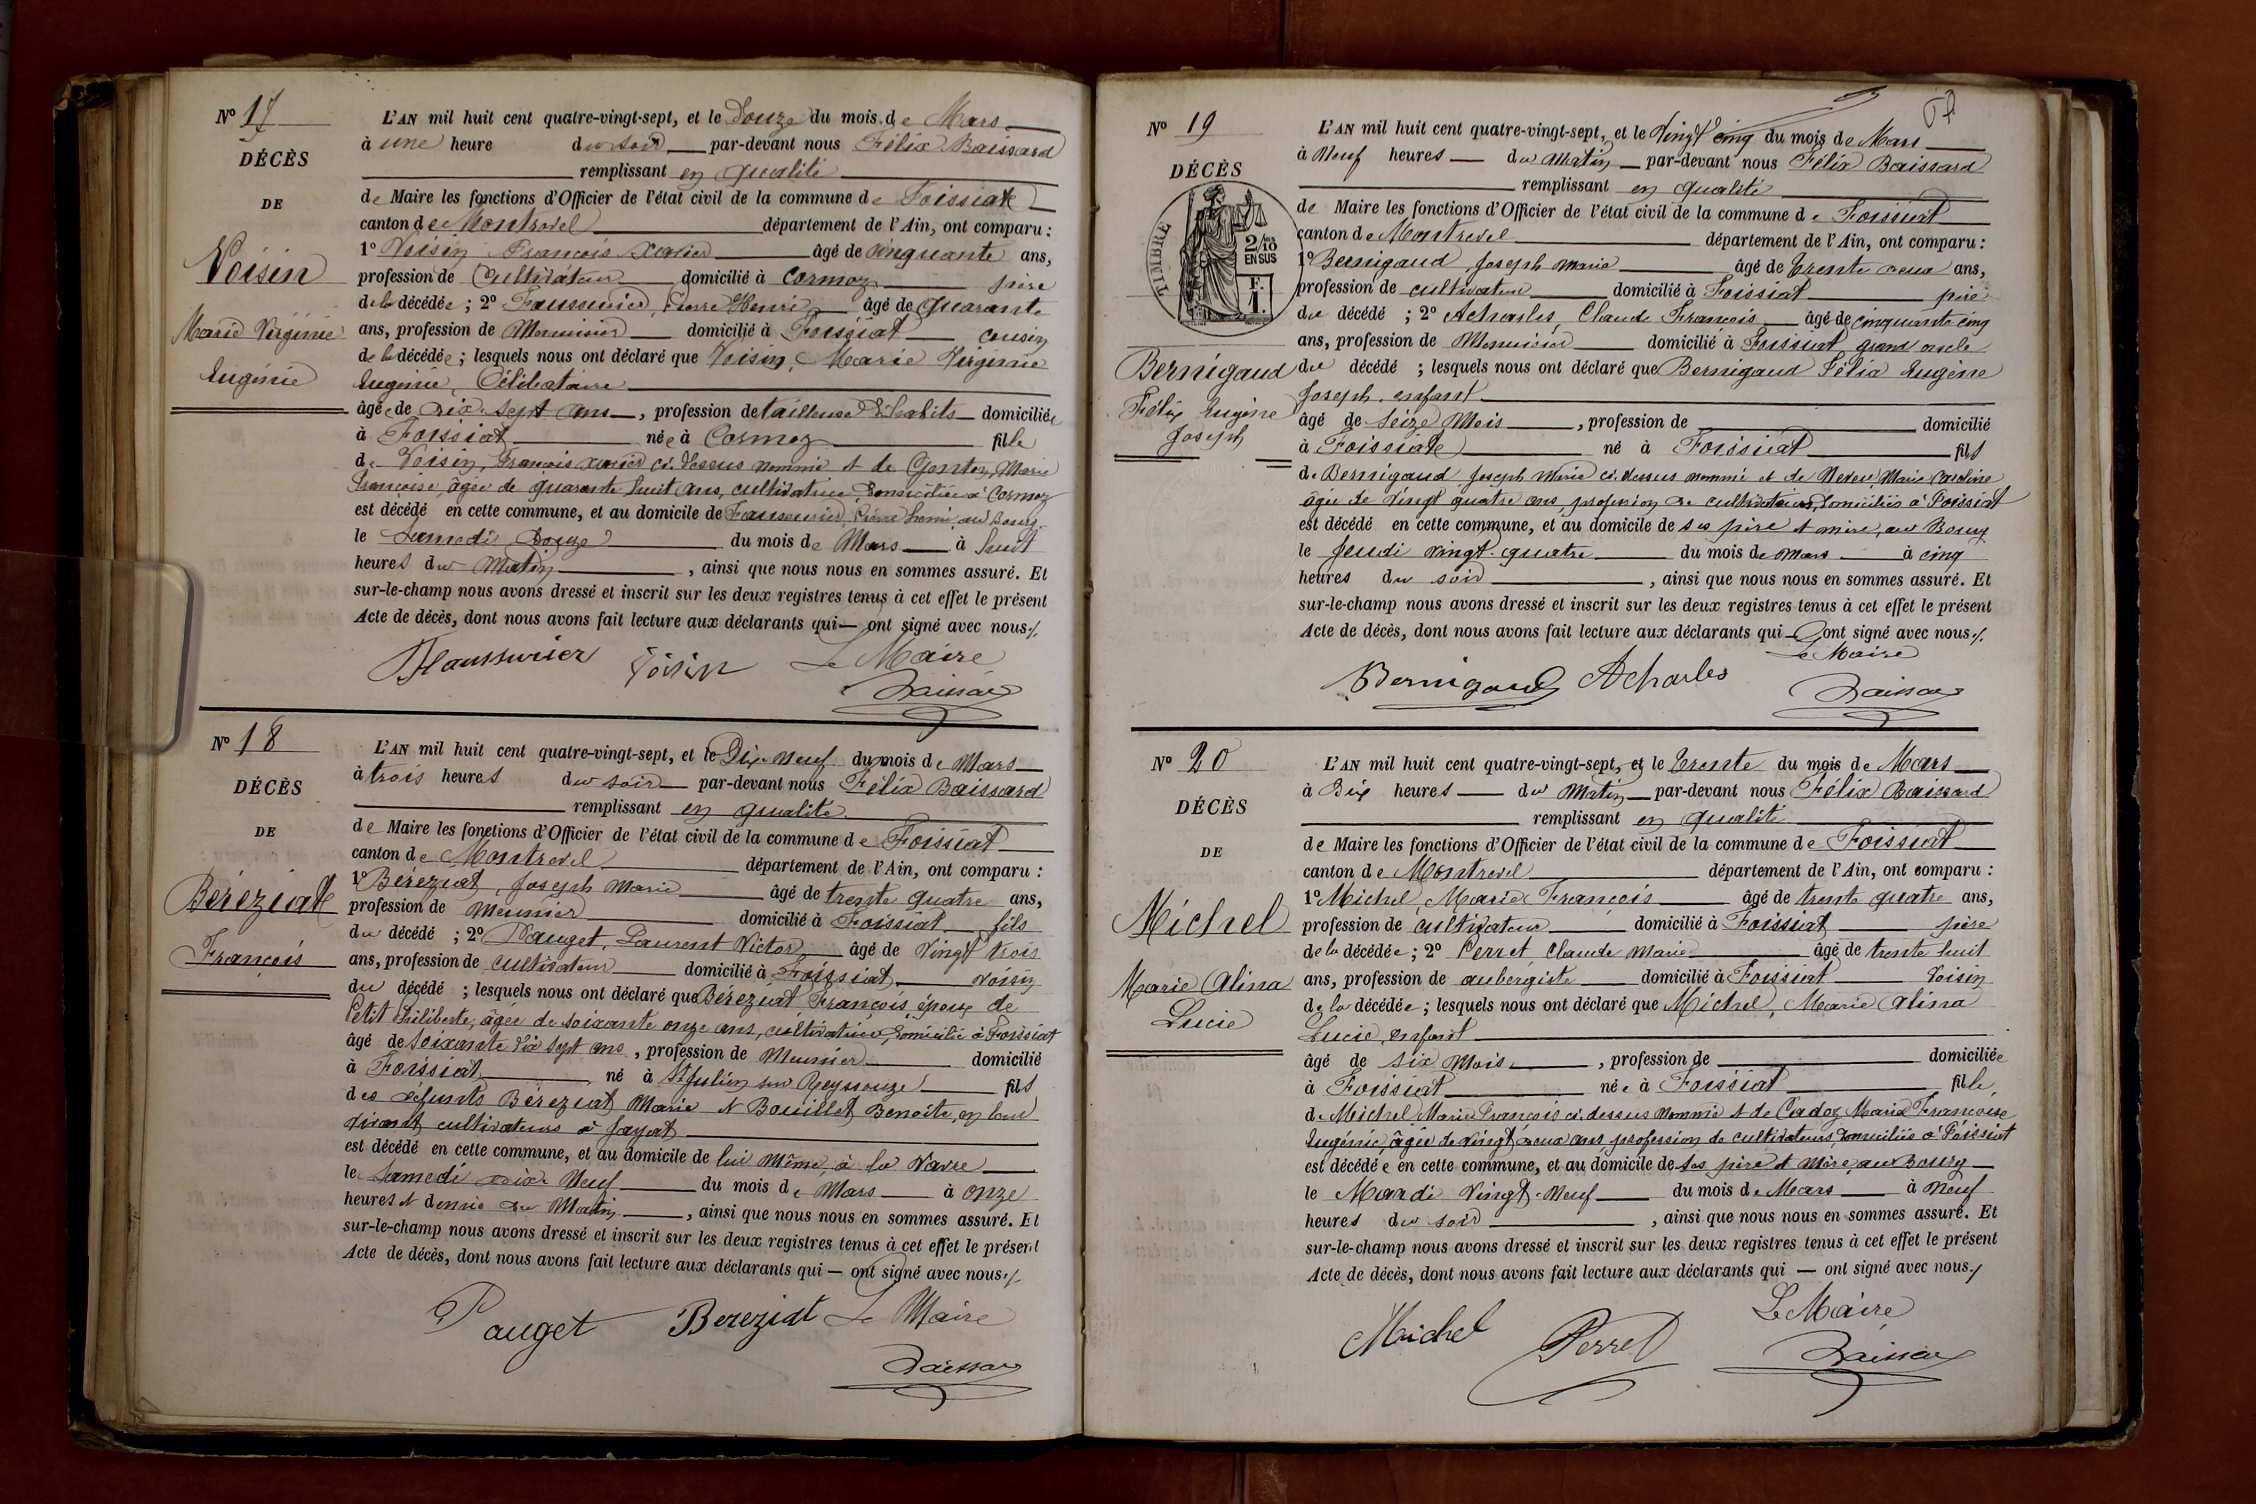 Nº 17
DÉCÈS
DE
Voisin
Marie Virginie
Eugénie
L'AN mil huit cent quatre-vingt-sept, et le Douze du mois de Mars
à une heure du soir par-devant nous Félix Baissard
remplissant en qualité
de Maire les fonctions d'Officier de l'état civil de la commune de Foissiat
canton de Montrevel département de l'Ain, ont comparu :
1º Voisin François Xavier âgé de cinquante ans,
profession de Cultivateur domicilié à Cormoz père
de la décédée ; 2º Faussurier, Pierre Henri âgé de quarante
ans, profession de Menuisier domicilié à Foissiat cousin
de la décédée ; lesquels nous ont déclaré que Voisin, Marie Virginie
Eugénie, Célibataire
âgée de dix-sept ans, profession de tailleuse d'habits domiciliée
à Foissiat née à Cormoz fille
de Voisin, François Xavier ci-dessus nommé et de Marie
Françoise, âgée de quarante huit ans, cultivatrice, domiciliée à Cormoz
est décédé en cette commune, et au domicile de Faussurier, Pierre Henri, au Bourg
le Samedi Douze du mois de Mars à huit
heures du Matin, ainsi que nous nous en sommes assuré. Et
sur-le-champ nous avons dressé et inscrit sur les deux registres tenus à cet effet le présent
Acte de décès, dont nous avons fait lecture aux déclarants qui — ont signé avec nous./.
Faussurier Voisin Le Maire
Baissard
Nº 18
DÉCÈS
DE
Béréziat
François
L'AN mil huit cent quatre-vingt-sept, et le Dix-Neuf du mois de Mars
à trois heures du soir par-devant nous Félix Baissard
remplissant en qualité
de Maire les fonctions d'Officier de l'état civil de la commune de Foissiat
canton de Montrevel département de l'Ain, ont comparu :
1º Béréziat, Joseph Marie âgé de trente quatre ans,
profession de Meunier domicilié à Foissiat fils
du décédé ; 2º Pauget, Laurent Victor âgé de Vingt trois
ans, profession de cultivateur domicilié à Foissiat voisin
du décédé ; lesquels nous ont déclaré que Béréziat François, époux de
Petit Philiberte, âgée de soixante onze ans, cultivatrice, domiciliée à Foissiat
âgé de soixante dix sept ans, profession de Meunier domicilié
à Foissiat né à St Julien sur Reyssouze fils
des défunts Béréziat Marie et Bouillet Benoîte, en leur
vivant cultivateurs à Jayat
est décédé en cette commune, et au domicile de lui même, à la
le Samedi dix-Neuf du mois de Mars à onze
heures et demie du Matin, ainsi que nous nous en sommes assuré. Et
sur-le-champ nous avons dressé et inscrit sur les deux registres tenus à cet effet le présent
Acte de décès, dont nous avons fait lecture aux déclarants qui — ont signé avec nous./.
Pauget Bereziat Le Maire
Baissard
Nº 19
DÉCÈS
TIMBRE
2/10 EN SUS
F. 1.
Bernigaud
Félix Eugène
Joseph
L'AN mil huit cent quatre-vingt-sept, et le Vingt cinq du mois de Mars
à Neuf heures du Matin par-devant nous Félix Baissard
remplissant en qualité
de Maire les fonctions d'Officier de l'état civil de la commune de Foissiat
canton de Montrevel département de l'Ain, ont comparu :
1º Bernigaud Joseph Marie âgé de trente deux ans,
profession de cultivateur domicilié à Foissiat père
du décédé ; 2º Acharles, Claude François âgé de cinquante cinq
ans, profession de Menuisier domicilié à Foissiat grand oncle
du décédé ; lesquels nous ont déclaré que Bernigaud Félix Eugène
Joseph, enfant
âgé de seize Mois, profession de domicilié
à Foissiat né à Foissiat fils
de Bernigaud Joseph Marie ci-dessus nommé et de Marie Caroline
âgée de vingt quatre ans, profession de cultivateurs, domiciliés à Foissiat
est décédé en cette commune, et au domicile de ses père et mère, au Bourg
le Jeudi vingt-quatre du mois de mars à cinq
heures du soir, ainsi que nous nous en sommes assuré. Et
sur-le-champ nous avons dressé et inscrit sur les deux registres tenus à cet effet le présent
Acte de décès, dont nous avons fait lecture aux déclarants qui — ont signé avec nous./.
Bernigaud Acharles Le Maire
Baissard
Nº 20
DÉCÈS
DE
Michel
Marie Alina
Lucie
L'AN mil huit cent quatre-vingt-sept, et le trente du mois de Mars
à Dix heures du Matin par-devant nous Félix Baissard
remplissant en qualité
de Maire les fonctions d'Officier de l'état civil de la commune de Foissiat
canton de Montrevel département de l'Ain, ont comparu :
1º Michel, Marie François âgé de trente quatre ans,
profession de cultivateur domicilié à Foissiat père
de la décédée ; 2º Perret, Claude Marie âgé de trente huit
ans, profession de aubergiste domicilié à Foissiat Voisin
de la décédée ; lesquels nous ont déclaré que Michel, Marie Alina
Lucie, enfant
âgé de six Mois, profession de domiciliée
à Foissiat née à Foissiat fille
de Michel Marie François ci-dessus nommé et de Cadoz Marie Françoise
Eugénie, âgée de vingt deux ans profession de cultivateurs, domiciliés à Foissiat
est décédée en cette commune, et au domicile de ses père et Mère, au Bourg
le Mardi Vingt-Neuf du mois de Mars à Neuf
heures du soir, ainsi que nous nous en sommes assuré. Et
sur-le-champ nous avons dressé et inscrit sur les deux registres tenus à cet effet le présent
Acte de décès, dont nous avons fait lecture aux déclarants qui — ont signé avec nous./
Michel Perret Le Maire
Baissard